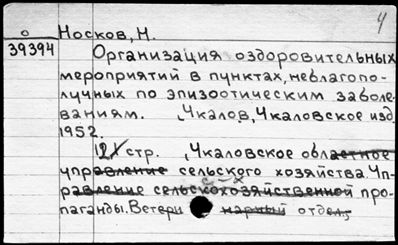 4
о Носков, Н.
39394 Организация оздоровительных
мероприятий в пунктах, неблагопо-
лучных по эпизоотическим заболе-
ваниям. Чкалов, Чкаловское изд.
1952.
12 стр. Чкаловское областное
управление сельского хозяйства. Уп-
равление сельскохозяйственной про-
паганды. Ветери нарный отдел,